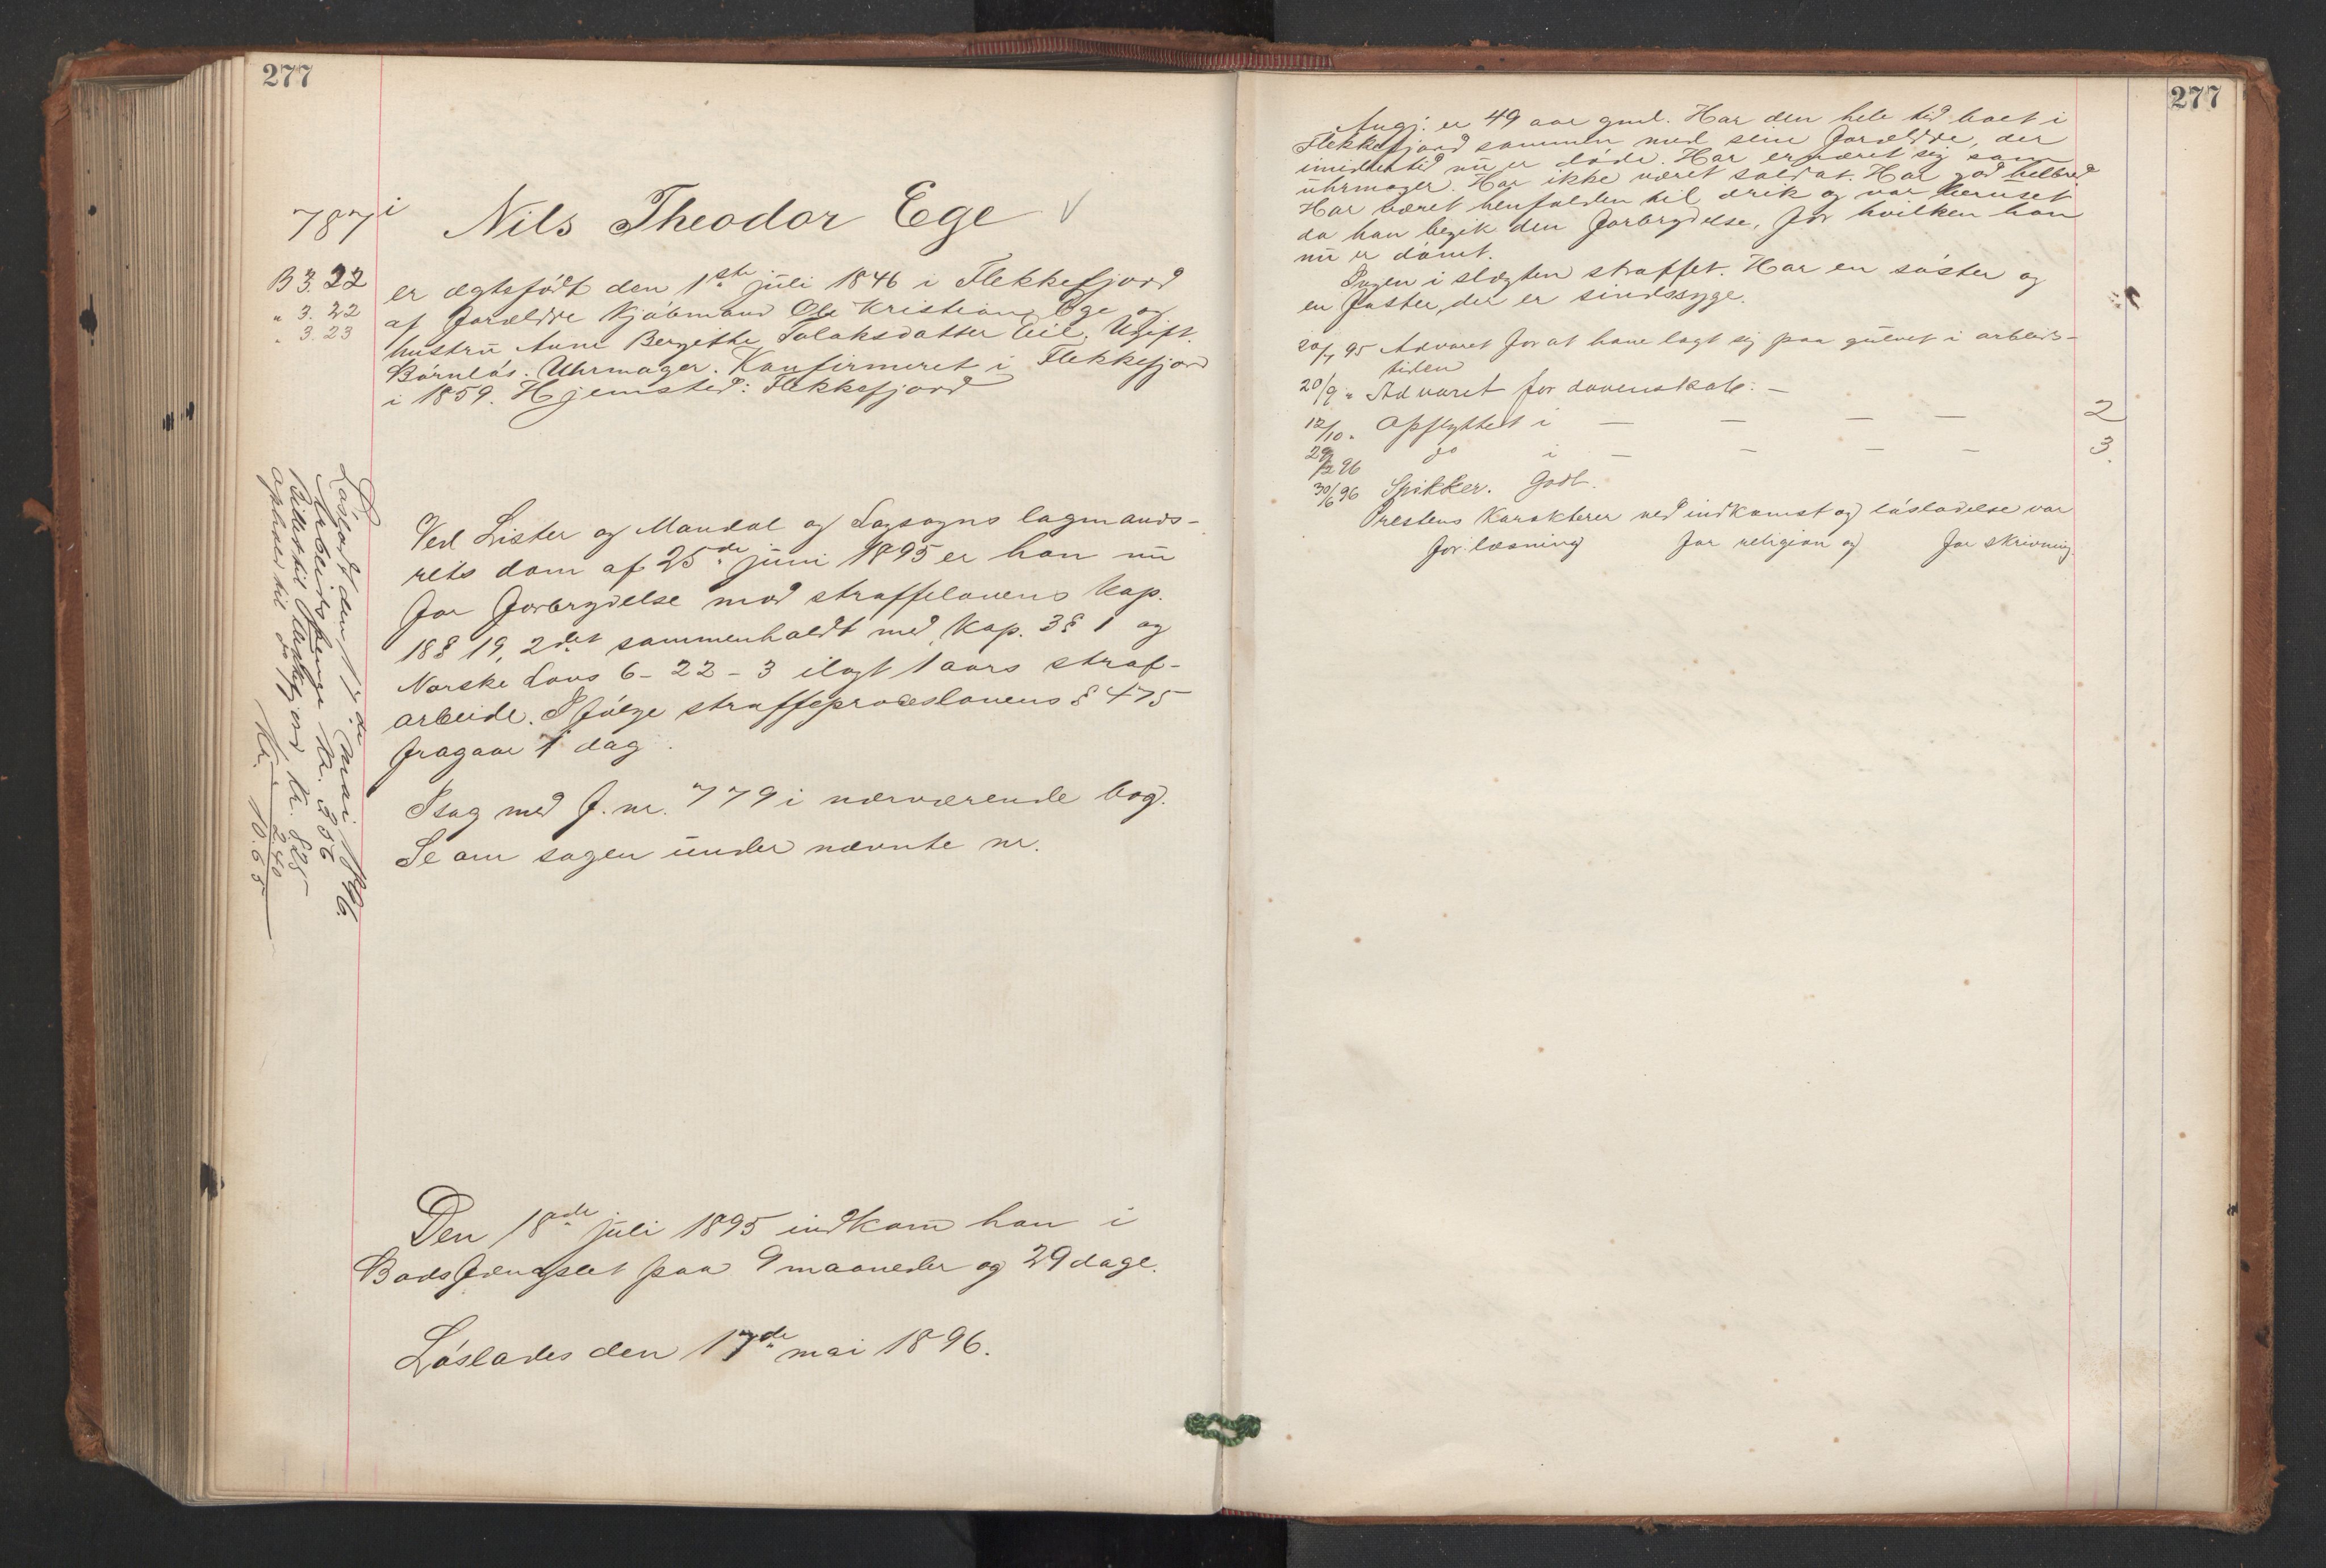 277
787 i
Nils Theodor Ege
B 3. 22
" 3. 22
" 3. 23
er ægtefødt den 1ste juli 1846 i Flekkefjord
af forældre kjøbmand Ole Kristian Ege og
hustru Anne Bergithe Tolaksdatter Eie. Ugift.
Børnløs. Uhrmager. Konfirmeret i Flekkefjord
i 1859. Hjemsted: Flekkefjord
Ved Lister og Mandal og Lagsogns lagmands-
rets dom af 25de juni 1895 er han nu
for forbrydelse mod straffelovens kap.
18 § 19, 2det sammenholdt med kap. 3 § 1 og
Norske Lovs 6-22-3 ilagt 1 aars straf-
arbeide. Ifølge straffeproceslovens § 475
fragaar 1 dag.
I sag med f. nr. 779 i nærværende bog.
Se om sagen under nævnte nr.
Løsladt den 17de mai 1896.
Arbeidspenge Kr. 356
Billet til Flekkefjord, Kr. 8.25
ophold til do " 2.40
Kr. 10.65
Den 18ade juli 1895 indkom han i
Bodsfængslet paa 9 maaneder og 29 dage.
Løslades den 17de mai 1896.
277
Angj. er 49 aar gml. Har den hele tid boet i
Flekkefjord sammen med sine forældre, der
imidlertid nu er døde. Har ernæret sig som
uhrmager. Har ikke været soldat. Har god helbred
Har været henfalden til drik og var beruset
da han begik den forbrydelse, for hvilken han
nu er dømt.
Ingen i slægten straffet. Har en søster og
en faster, der er sindssyge.
20/7 95 Advaret for at have lagt sig paa gulvet i arbeids-
tiden
20/9 " Advaret for dovenskab. —
12/10 " Opflyttet i — — — — 2
29/2 96 do i — — — — 3.
30/6 96 Sikker. Godt.
Prestens karakterer ved indkomst og løsladelse var
for læsning for religion og for skrivning.